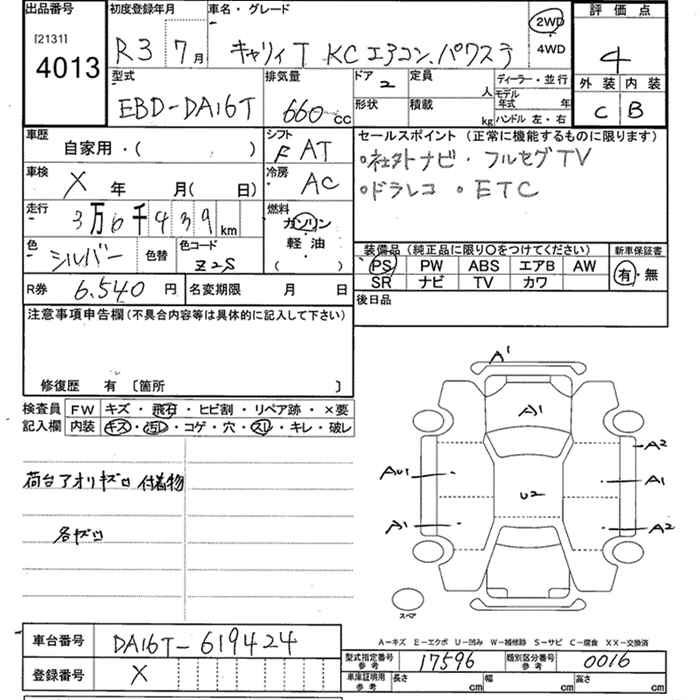 出品番号 初度登録年月 車名・グレード 評価点
[2131]
4013
R3 7月 キャリィT KC エアコン.パワステ 2WD・4WD 4
型式 排気量 ドア 2 定員 人 ディーラー・並行 外装 内装
EBD-DA16T 660cc 形状 積載 kg モデル年式 年 ハンドル 左・右 C B
車歴 シフト セールスポイント (正常に機能するものに限ります)
自家用・( ) F AT ・社外ナビ・フルセグTV
車検 冷房 ・ドラレコ ・ETC
X 年 月( 日) AC
走行 3万6千439km 燃料 ガソリン・軽油・( )
色 シルバー 色替 色コード Z2S 装備品 (純正品に限り〇をつけてください) 新車保証書
PS PW ABS エアB AW 有・無
R券 6.540 円 名変期限 月 日 SR ナビ TV カワ
注意事項申告欄 (不具合内容等は具体的に記入して下さい) 後日品
修復歴 有 〔箇所 〕
検査員 FW キズ・飛石・ヒビ割・リペア跡・×要
記入欄 内装 キズ・汚レ・コゲ・穴・スレ・キレ・破レ
荷台アオリキズ凹 付着物
各キズ凹
A1
A1
A2
AU1
A1
U2
A1
A2
スペア
A-キズ E-エクボ U-凹み W-補修跡 S-サビ C-腐食 XX-交換済
車台番号 DA16T-619424
型式指定番号 参考 17596 類別区分番号 参考 0016
登録番号 X
車庫証明用 参考 長さ cm 幅 cm 高さ cm